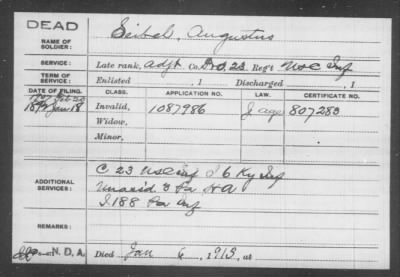 DEAD
NAME OF SOLDIER: Seibel, Augustus
SERVICE: Late rank, Adjt. Co. D. 23 Reg't U.S.C. Inf
TERM OF SERVICE: Enlisted , 1 Discharged , 1
DATE OF FILING. CLASS. APPLICATION NO. LAW. CERTIFICATE NO.
Jan 18 Invalid, 1087986 807283
Widow,
Minor,
ADDITIONAL SERVICES: C 23 U.S.C. Inf I 6 Ky Inf
Unassd. 3 Pa H A
I. 188 Pa Inf
REMARKS:
N. D. A. Died Jan 6, 1913, at